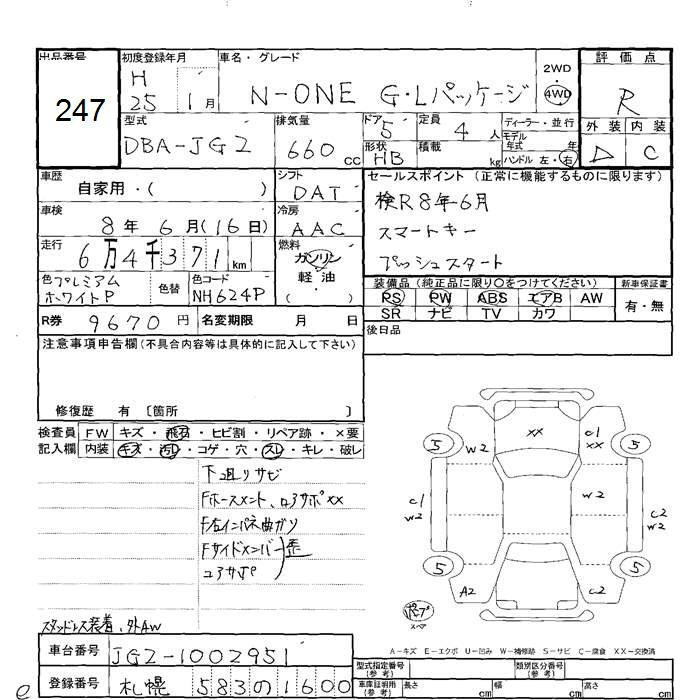 出品番号
247
初度登録年月
H
25 1月
車名・グレード
N-ONE G・Lパッケージ
2WD
・
4WD
評価点
R
外装 内装
△ C
型式
DBA-JG2
排気量
660cc
ドア 5
形状 HB
定員 4人
積載 kg
ディーラー・並行
モデル年式 年
ハンドル 左・右
車歴
自家用・( )
シフト
DAT
セールスポイント (正常に機能するものに限ります)
検R8年6月
スマートキー
プッシュスタート
車検
8年6月(16日)
冷房
AAC
走行
6万4千371km
燃料
ガソリン
軽油
( )
色 プレミアム
ホワイトP
色替
色コード
NH624P
装備品 (純正品に限り○をつけてください)
PS PW ABS エアB AW
SR ナビ TV カワ
新車保証書
有・無
R券 9670円
名変期限 月 日
後日品
注意事項申告欄(不具合内容等は具体的に記入して下さい)
修復歴 有 〔箇所 〕
検査員 FW キズ・飛石・ヒビ割・リペア跡・×要
記入欄 内装 キズ・汚レ・コゲ・穴・スレ・キレ・破レ
下廻りサビ
Fホースメント、コアサポXX
F左インパネ曲ガリ
Fサイドメンバー
コアサポ
歪
スタッドレス装着、外AW
XX
C1
XX
5
5
W2
W2
C1
W2
C2
W2
5
5
A2
C2
テンプ
スペア
A-キズ E-エクボ U-凹み W-補修跡 S-サビ C-腐食 XX-交換済
車台番号 JG2-1002951
登録番号 札幌 583の1600
型式指定番号
(参考)
類別区分番号
(参考)
車庫証明用
(参考)
長さ cm
幅 cm
高さ cm